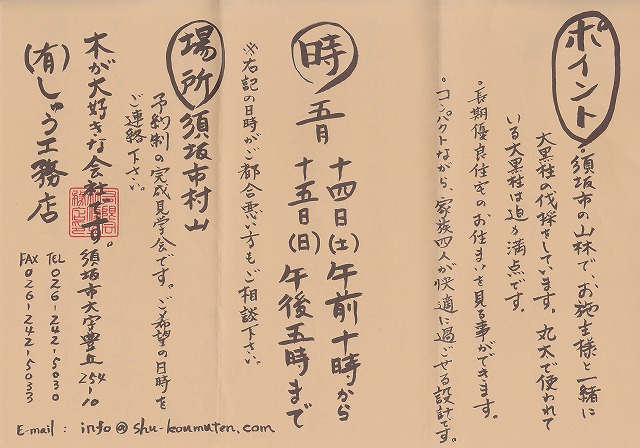 ポイント
・須坂市の山林で、お施主様と一緒に
大黒柱の伐採をしています。丸太で使われて
いる大黒柱は迫力満点です。
・長期優良住宅のお住まいを見る事ができます。
・コンパクトながら、家族四人が快適に過ごせる設計です。
時
五月
十四日(土)午前十時から
十五日(日)午後五時まで
※右記の日時がご都合悪い方もご相談下さい。
場所
須坂市村山
予約制の完成見学会です。ご希望の日時を
ご連絡下さい。
木が大好きな会社です。
(有)しゅう工務店
須坂市大字豊丘254-10
TEL 026-242-5030
FAX 026-242-5033
E-mail : info@shu-koumuten.com